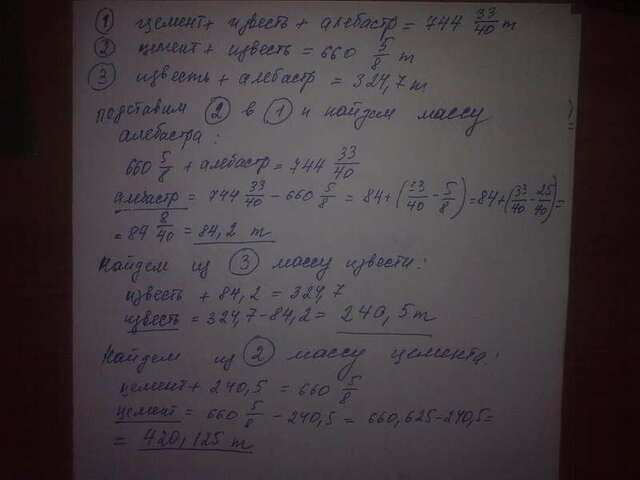 ① цемент + известь + алебастр = 744 33/40 т
② цемент + известь = 660 5/8 т
③ известь + алебастр = 324,7 т
подставим ② в ① и найдем массу
алебастра:
660 5/8 + алебастр = 744 33/40
алебастр = 744 33/40 - 660 5/8 = 84 + (33/40 - 5/8) = 84 + (33/40 - 25/40) =
= 84 8/40 = 84,2 т
Найдем из ③ массу извести:
известь + 84,2 = 324,7
известь = 324,7 - 84,2 = 240,5 т
Найдем из ② массу цемента:
цемент + 240,5 = 660 5/8
цемент = 660 5/8 - 240,5 = 660,625 - 240,5 =
= 420,125 т